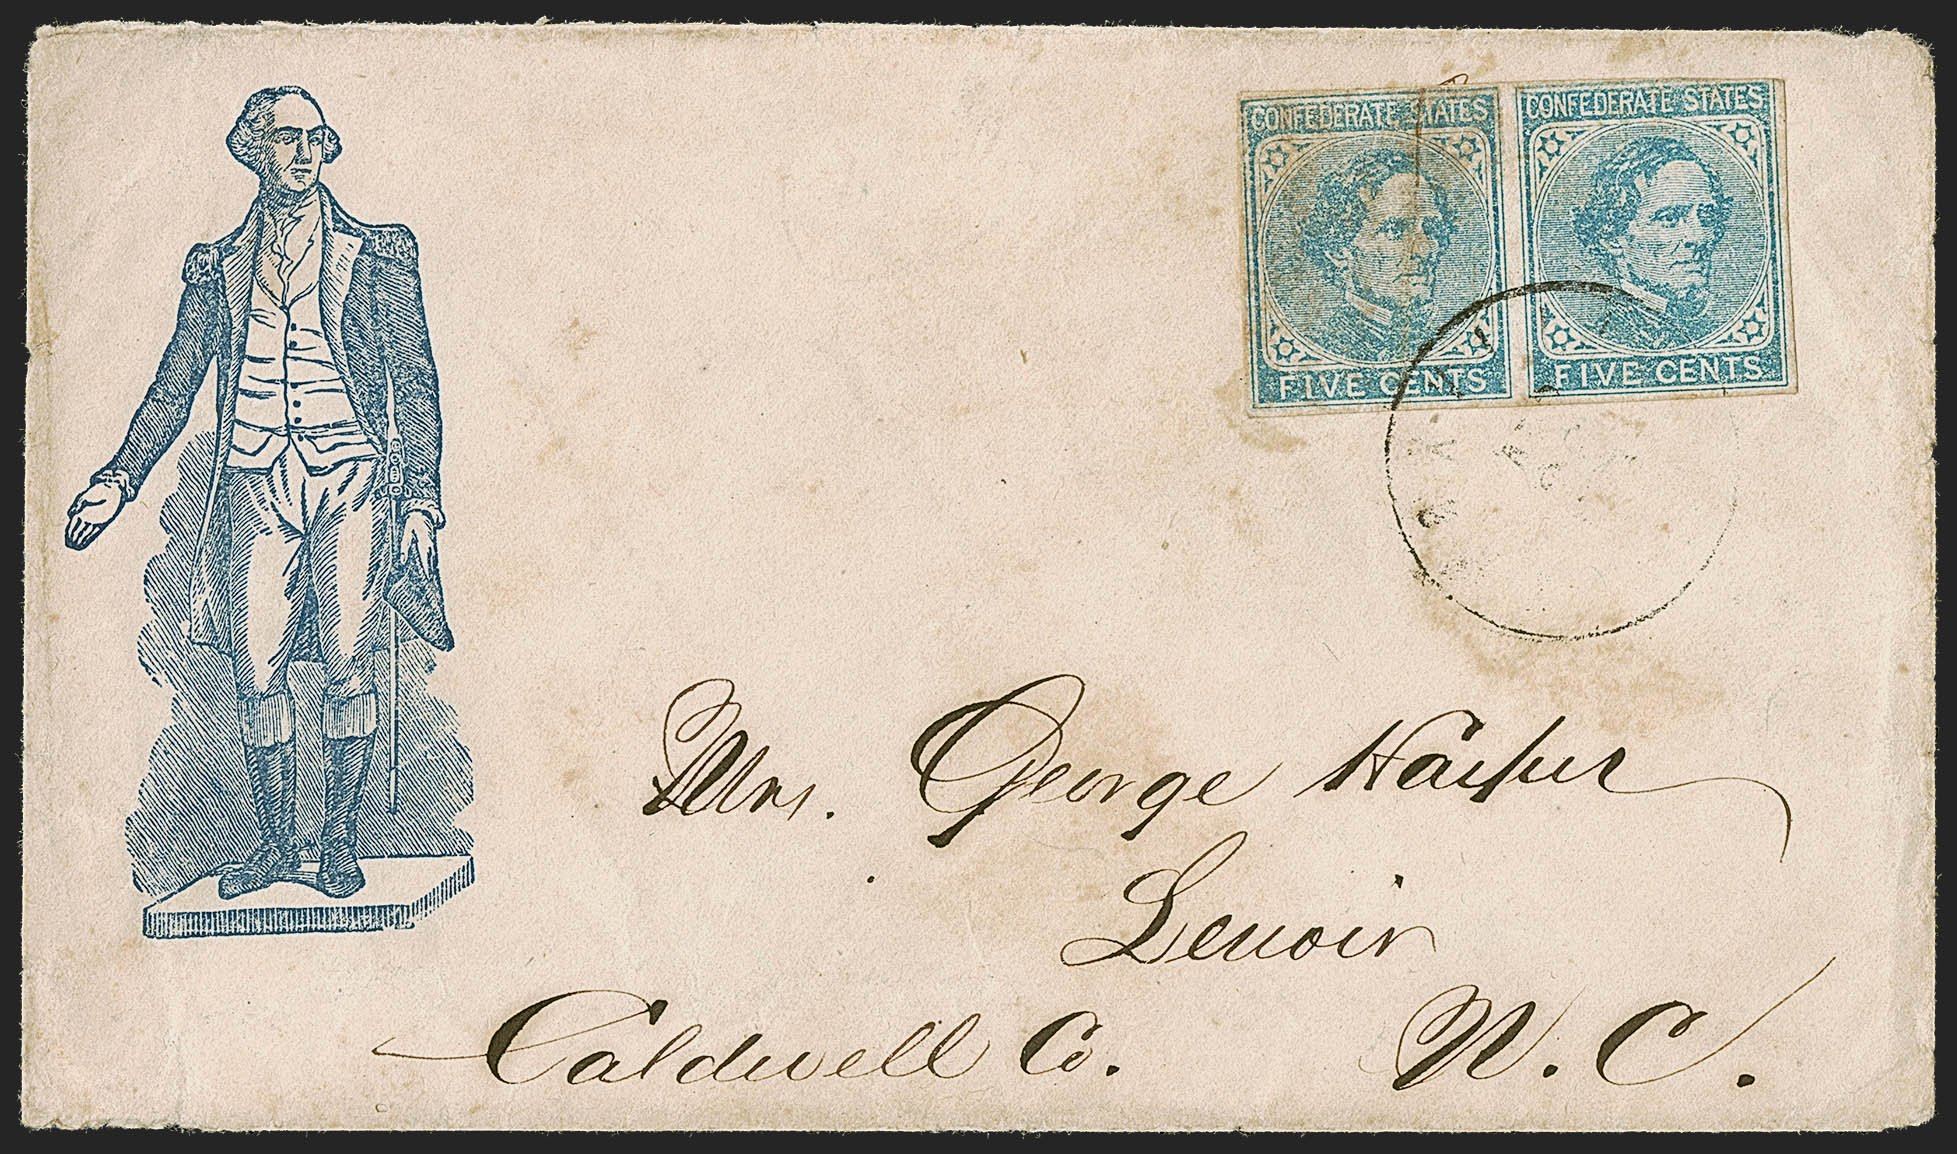 CONFEDERATE STATES
FIVE CENTS
CONFEDERATE STATES
FIVE CENTS
Mrs. George Harper
Lenoir
Caldwell Co. N. C.